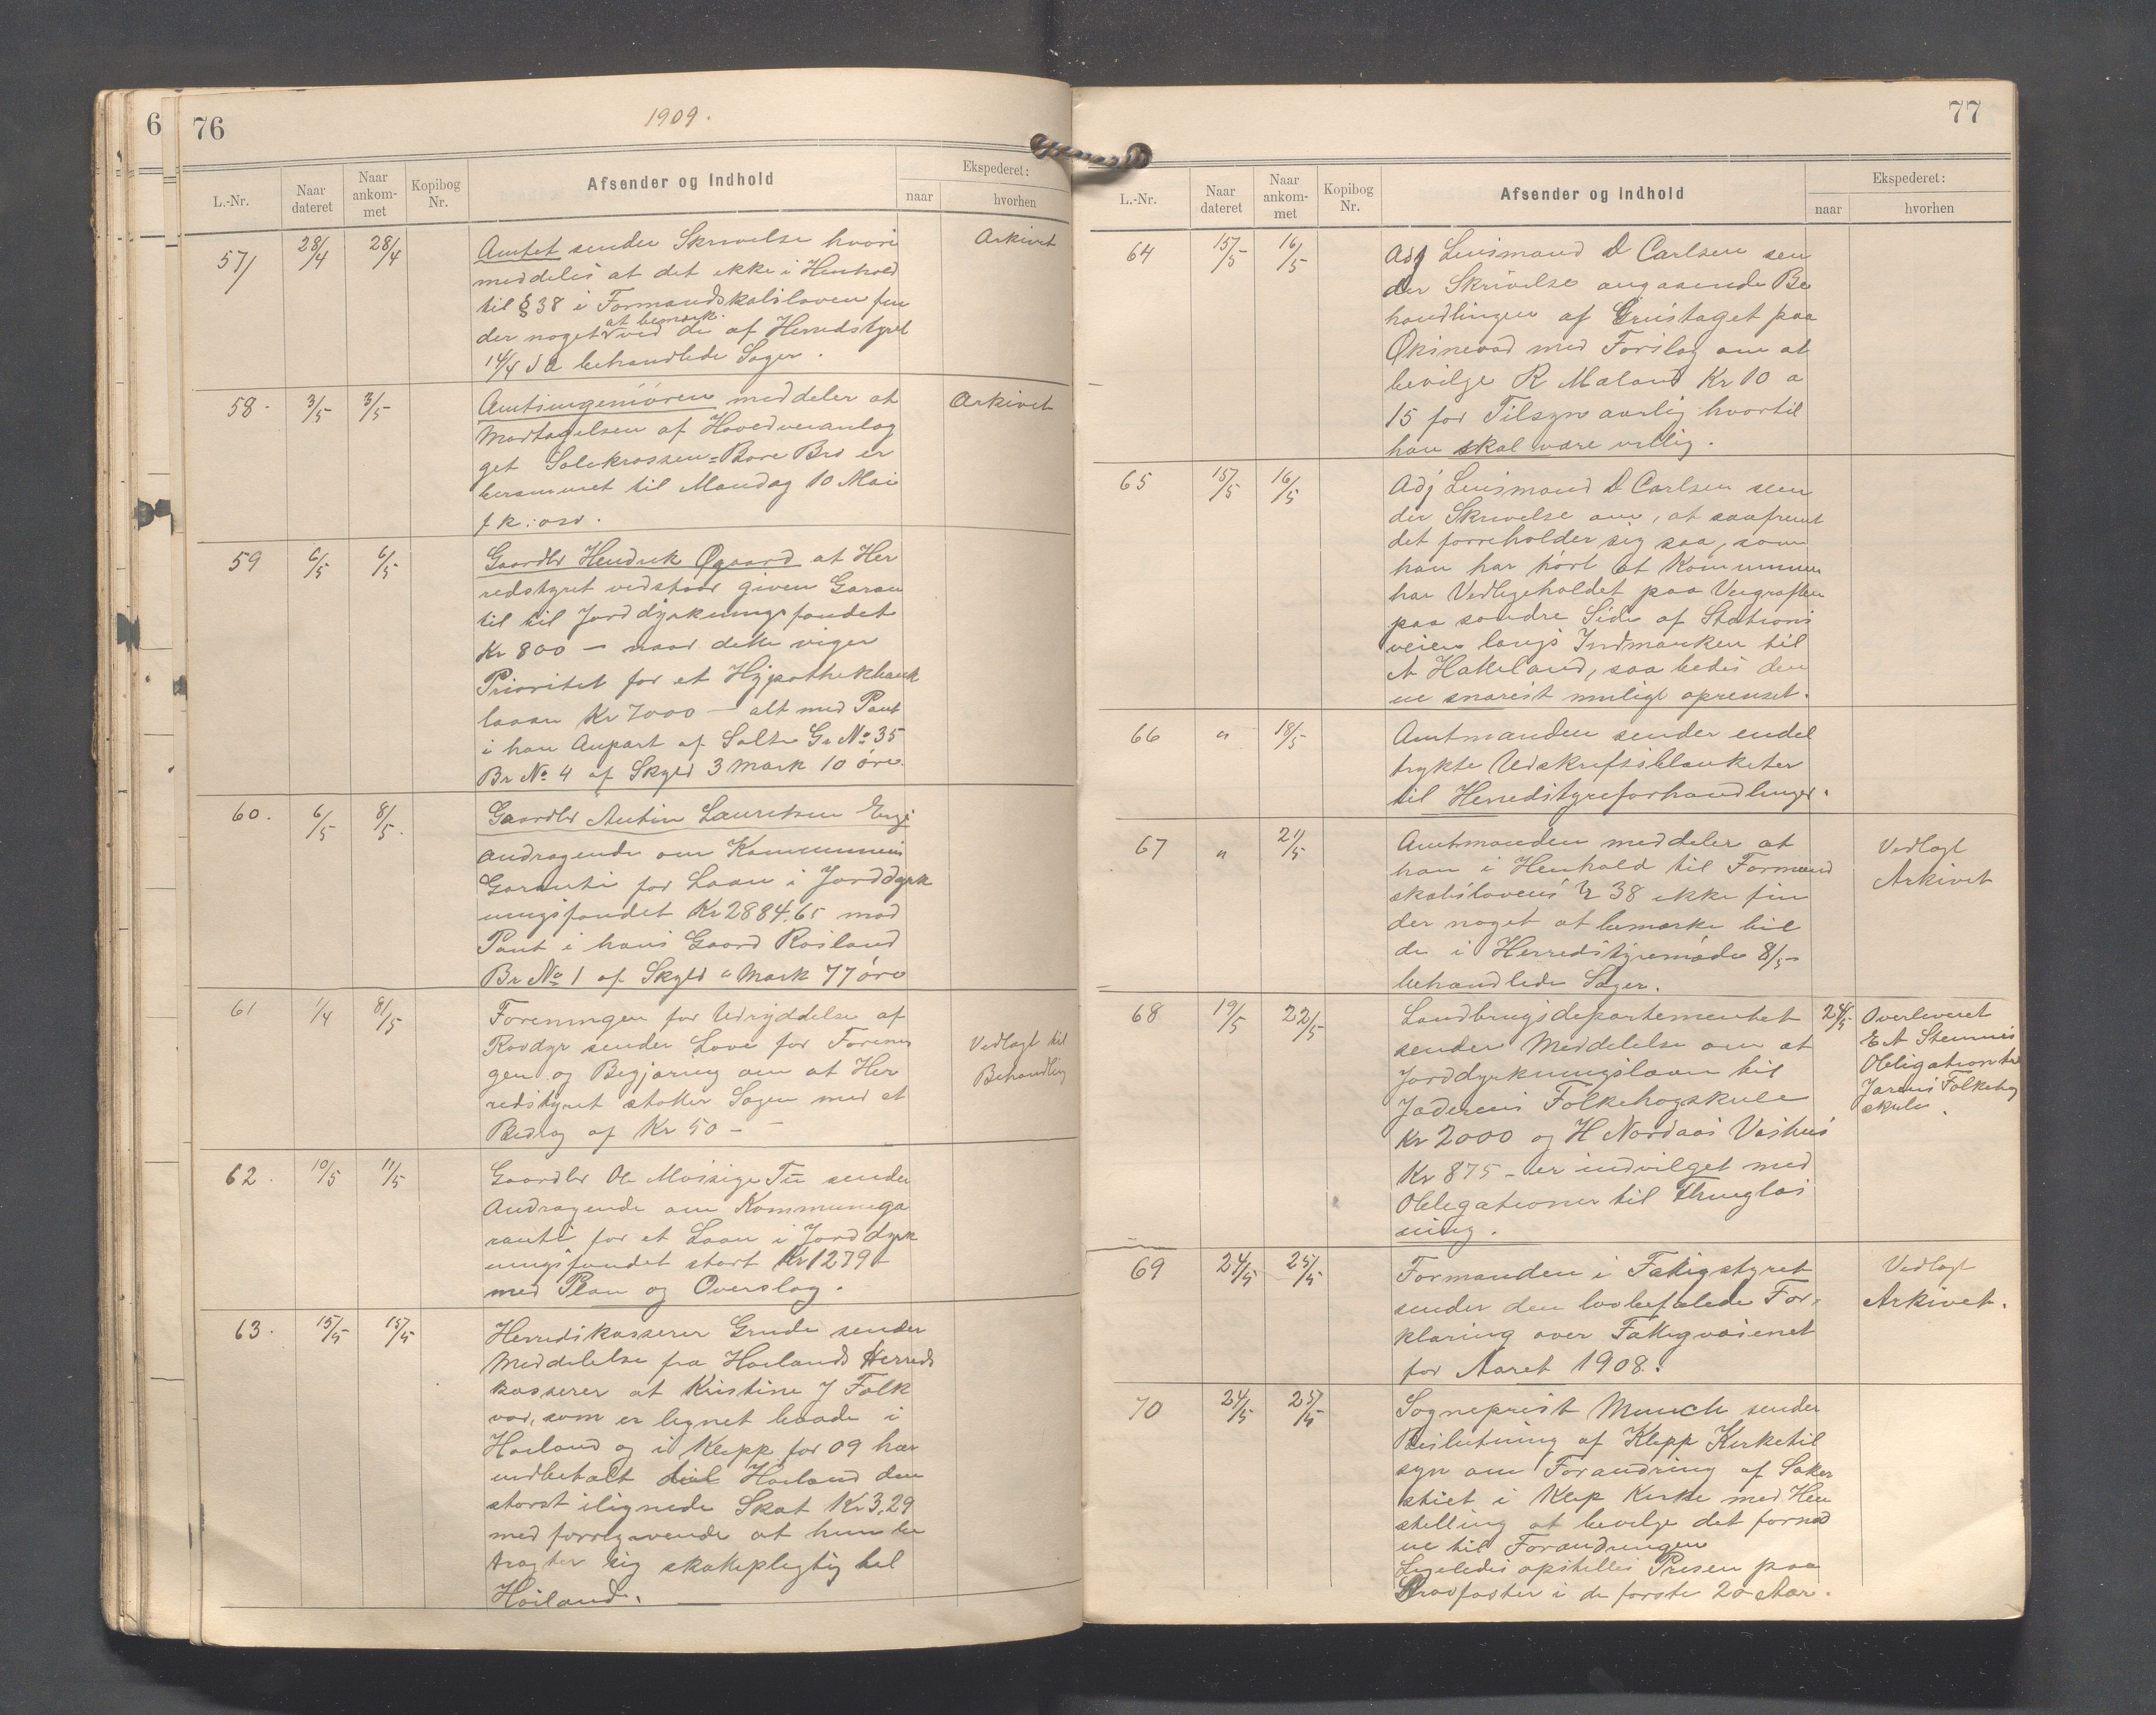 6
76
1909.
L.-Nr.
Naar dateret
Naar ankommet
Kopibog Nr.
Afsender og Indhold
Ekspederet:
naar
hvorhen
57
28/4
28/4
Amtet sender Skrivelse hvori
meddeles at det ikke i Henhold
til § 38 i Formandskabsloven fin
der noget at bemærk. ved de af Herredstyret
14/4 d A behandlede Sager.
Arkivet
58.
3/5
3/5
Amtsingeniøren meddeler at
Modtagelsen af Hovedveianlæg
get Solekrossen=Bore Bro er
berammet til Mandag 10 Mai
f k: osv.
Arkivet
59
6/5
6/5
Gaardbr Hendrik Øgaard at Her
redstyret vedstaar given Garan
ti til Jorddyrkningsfondet
Kr 800 – naar dette viger
Prioritet for et Hypothekbank
laaan Kr 7000 – alt med Pant
i han Anpart af Salte Gr No 35
Br No 4 af Skyld 3 Mark 10 øre.
60.
6/5
8/5.
Gaardbr Antin Lauritsen Engi
andragende om Kommunens
Garanti for Laan i Jorddyrk
ningsfondet Kr 2884.65 mod
Pant i hans Gaard Rosland
Br No 1 af Skyld " Mark 77 øre
61
1/4
8/5
Foreningen for Udryddelse af
Rovdyr sender Love for Forenin
gen og Begjæring om at Her
redstyret støtter Sagen med et
Bedrag af Kr 50 –
Vedlagt til
Behandling
62.
10/5
11/5
Gaardbr Ole Mossige Tu sender
Andragende om Kommunega
ranti for et Laan i Jorddyrk
ningsfondet stort Kr 1279
med Plan og Overslag.
63.
15/5
15/5
Herredskasserer Grude sender
Meddelelse fra Høilands Herreds
kasserer at Kristine J Folk
vor, som er lignet baade i
Høiland og i Klepp for 09 har
indbetalt til Høiland den
størst ilignede Skat Kr 3,29
med forregivende at hun be
tragter sig skattepligtig til
Høiland.
77
L.-Nr.
Naar dateret
Naar ankommet
Kopibog Nr.
Afsender og Indhold
Ekspederet:
naar
hvorhen
64
15/5
16/5
Adj Lensmand D Carlsen sen
der Skrivelse angaaende Be
handlingen af Grustaget paa
Øksnevad med Forslag om at
bevilge R Maland Kr 10 a
15 for Tilsyn aarlig hvortil
han skal være villig.
65
15/5
16/5
Adj Lensmand D Carlsen sen
der Skrivelse om, at saafremt
det forreholder sig saa, som
han har hørt at Kommunen
har Vedligeholdet paa Veigrøften
paa søndre Side af Stations
veien langs Indmarken til
A Hakeland, saa bedes den
ne snarest muligt oprenset.
66
"
18/5
Amtmanden sender endel
trykte Udskriftsblanketer
til Herredstyreforhandlinger.
67
"
21/5
Amtmanden meddeler at
han i Henhold til Formand
skabslovens § 38 ikke fin
der noget at bemærke til
de i Herredstyremøde 8/5
behandlede Sager.
Vedlagt
Arkivet
68
19/5
22/5
Landbrugsdepartementet
sender Meddelelse om at
Jorddyrkningslaan til
Jæderens Folkehøgskule
Kr 2000 og H Nordaas Vashus
Kr 875 – er indvilget med
Obligationer til Thinglæs
ning.
24/5
Overleveret
E A Stemnis
Obligation til
Jærens Folkehøg
skule.
69
24/5
25/5
Formanden i Fattigstyret
sender den lovbefalede For-
klaring over Fattigvæsenet
for Aaret 1908.
Vedlagt
Arkivet.
70
24/5
25/5
Sogneprest Munch sender
Beslutning af Klepp Kirketil
syn om Forandring af Saker
stiet i Klep Kirke med Hen
stilling at bevilge det fornød
ne til Forandringen
Ligeledes opstilles Prisen paa
Gravfæster i de første 20 Aar.